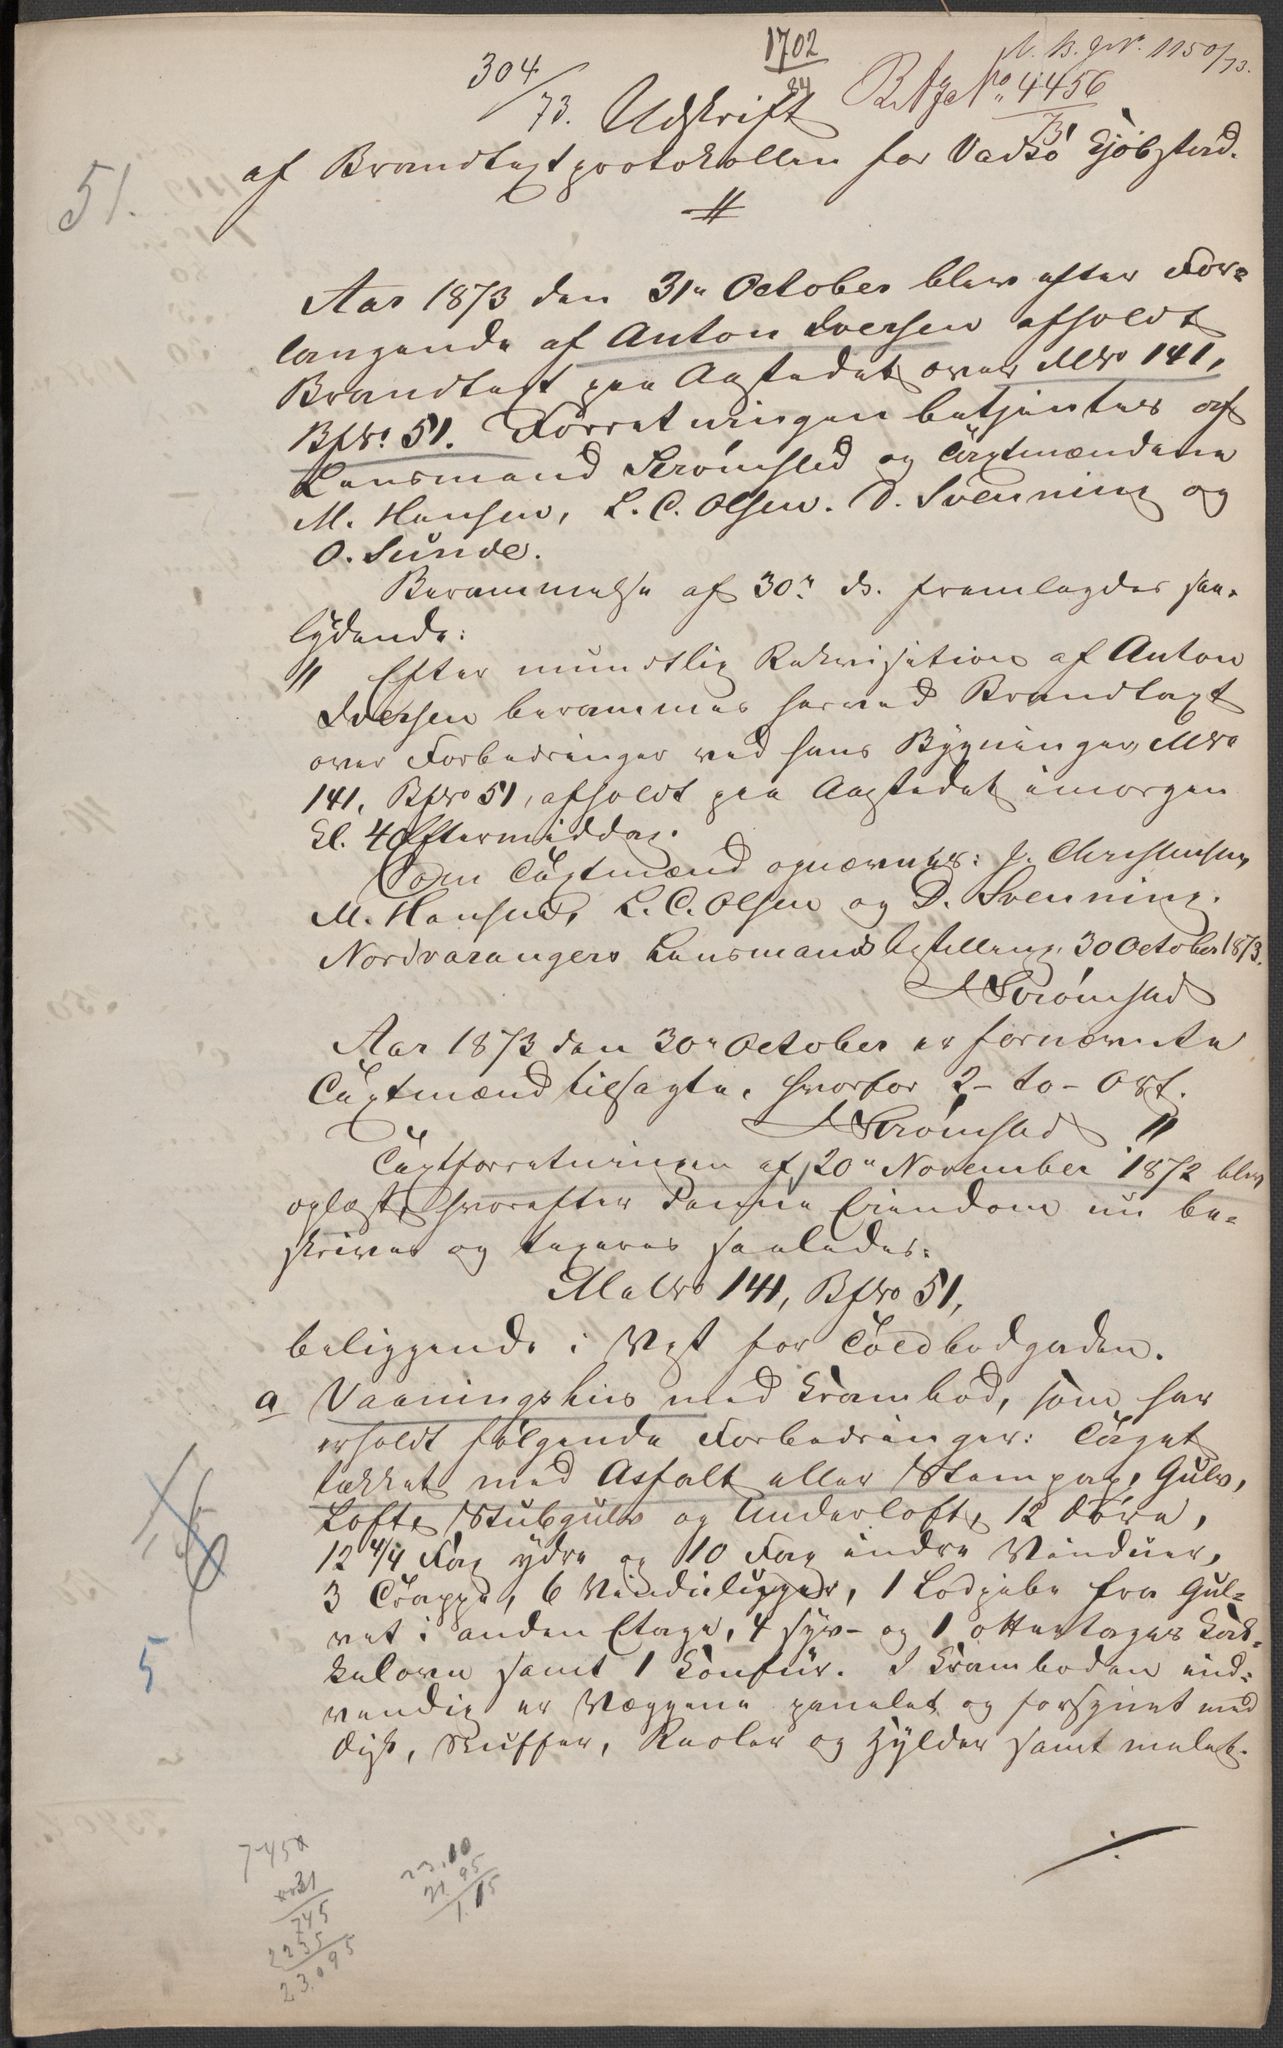 1702
84
304/73.
51.
Udskrift
af Brandtaxtprotokollen for Vadsö Kjöbstad.
Aar 1873 den 31te October blev efter For-
langende af Anton Iversen afholdt
Brandtaxt paa Aastedet over MNo 141,
BfNo 51. Forretningen betjentes af
Lensmand Strömsted og Taxtmændene
M. Hansen, L. C. Olsen. D. Svenning og
O. Sunde.
Berammelse af 30te ds. fremlagdes saa-
lydende:
" Efter mundtlig Rekvisition af Anton
Iversen berammes herved Brandtaxt
over Forbedringer ved hans Bygninger, MNo
141, BfNo 51, afholdt paa Aastedet imorgen
Kl. 4 Eftermiddag.
Som Taxtmænd opnævnes: J. Christensen,
M. Hansen, L. C. Olsen og D. Svenning.
Nordvarangers Lensmandsbestilling, 30 October 1873.
Strömsted
Aar 1873 den 30te October er fornævnte
Taxtmænd tilsagte, hvorfor 2 - to - Ort.
Strömsted "
Taxtforretningen af 20de November 1872 blev
oplæst, hvorefter denne Eiendom nu be-
skrives og taxeres saaledes:
MatNo 141, BfNo 51,
beliggende i Vest for Toldbodgaden.
a Vaaningshus med Krambod, som har
erholdt følgende Forbedringer: Taget
tækket med Asfalt eller Stenpap, Gulv,
Loft, Stubgulv og Underloft, 12 Döre,
12 4/4 Fag ydre og 10 Fag indre Vinduer,
3 Trappe, 6 Vindueligger, 1 Lodpibe fra Gul-
vet i anden Etage, 4 syv- og 1 otteetages Kak-
kelovn samt 1 Komfür. I Kramboden ind-
vendig er Væggene panelet og forsynet med
Disk, Skuffer, Reoler og Hylder samt malet.
5
745
2235
23.095
23.10
21.95
1.15